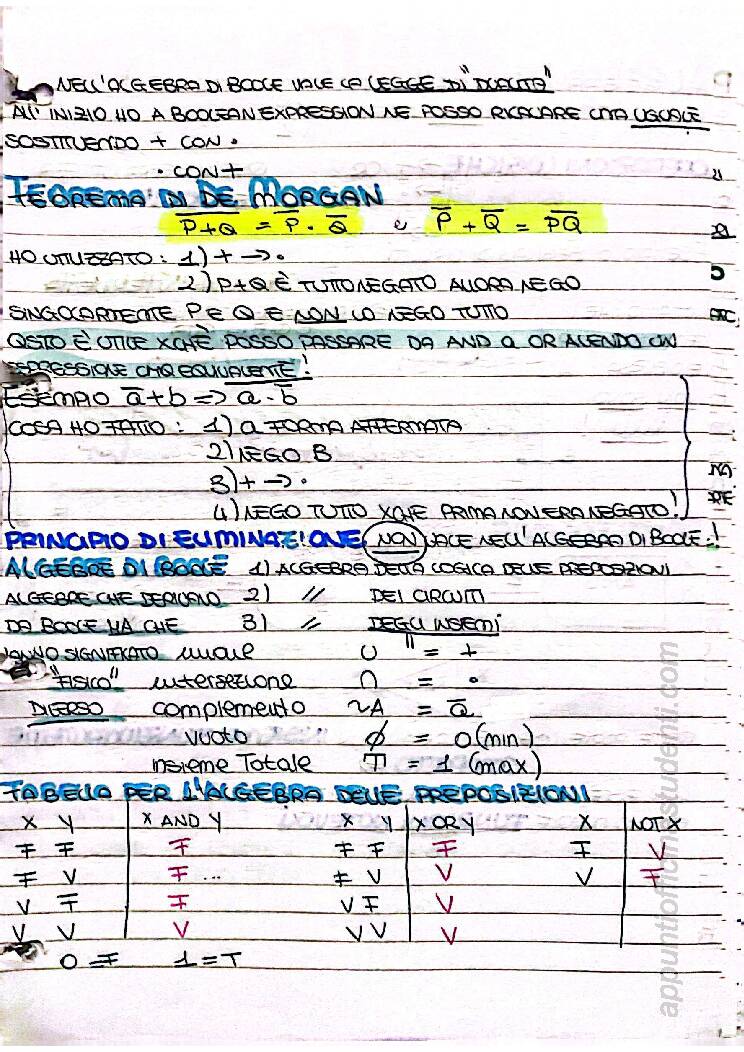 NELL'ALGEBRA DI BOOLE VALE LA LEGGE DI "DUALITÀ"
ALL'INIZIO HO A BOOLEAN EXPRESSION NE POSSO RICAVARE UNA UGUALE
SOSTITUENDO + CON ·
· CON +
TEOREMA DI DE MORGAN
P̅+̅Q̅ = P̅ · Q̅ e P̅ + Q̅ = P̅Q̅
HO UTILIZZATO: 1) + → ·
2) P+Q È TUTTO NEGATO ALLORA NEGO
SINGOLARMENTE P E Q E NON LO NEGO TUTTO
QSTO È UTILE XCHÈ POSSO PASSARE DA AND A OR AVENDO UN
ESPRESSIONE CMQ EQUIVALENTE!
ESEMPIO a̅+b => a·b̅
COSA HO FATTO: 1) a FORMA AFFERMATA
2) NEGO B
3) + → ·
4) NEGO TUTTO XCHE PRIMA NON ERA NEGATO!
PRINCIPIO DI ELIMINAZIONE NON VALE NELL'ALGEBRA DI BOOLE!
ALGEBRE DI BOOLE 1) ALGEBRA DELLA LOGICA DELLE PREPOSIZIONI
ALGEBRE CHE DERIVANO 2) // DEI CIRCUITI
DA BOOLE MA CHE 3) // DEGLI INSIEMI
HANNO SIGNIFICATO unione ∪ " = +
"FISICO" intersezione ∩ = ·
DIVERSO complemento ~A = a̅
vuoto ϕ = 0 (min)
insieme Totale T = 1 (max)
TABELLA PER L'ALGEBRA DELLE PREPOSIZIONI
X Y X AND Y X Y X OR Y X NOT X
F F F F F F F V
F V F ... F V V V F
V F F V F V
V V V V V V
0 = F 1 = T
appuntiofficinastudenti.com